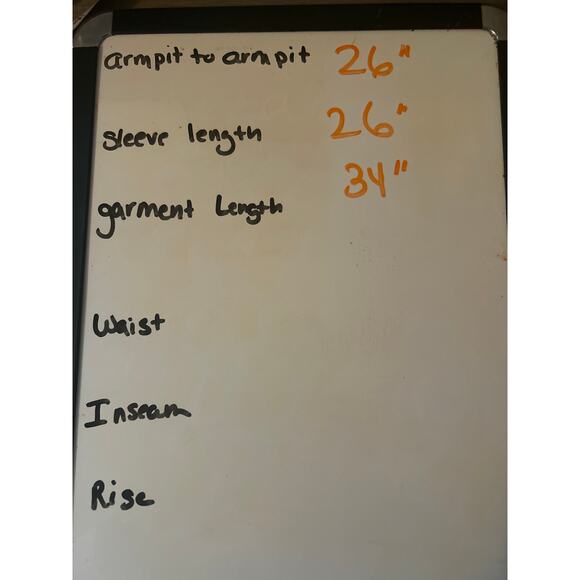 armpit to armpit 26"
sleeve length 26"
garment Length 34"
Waist
Inseam
Rise